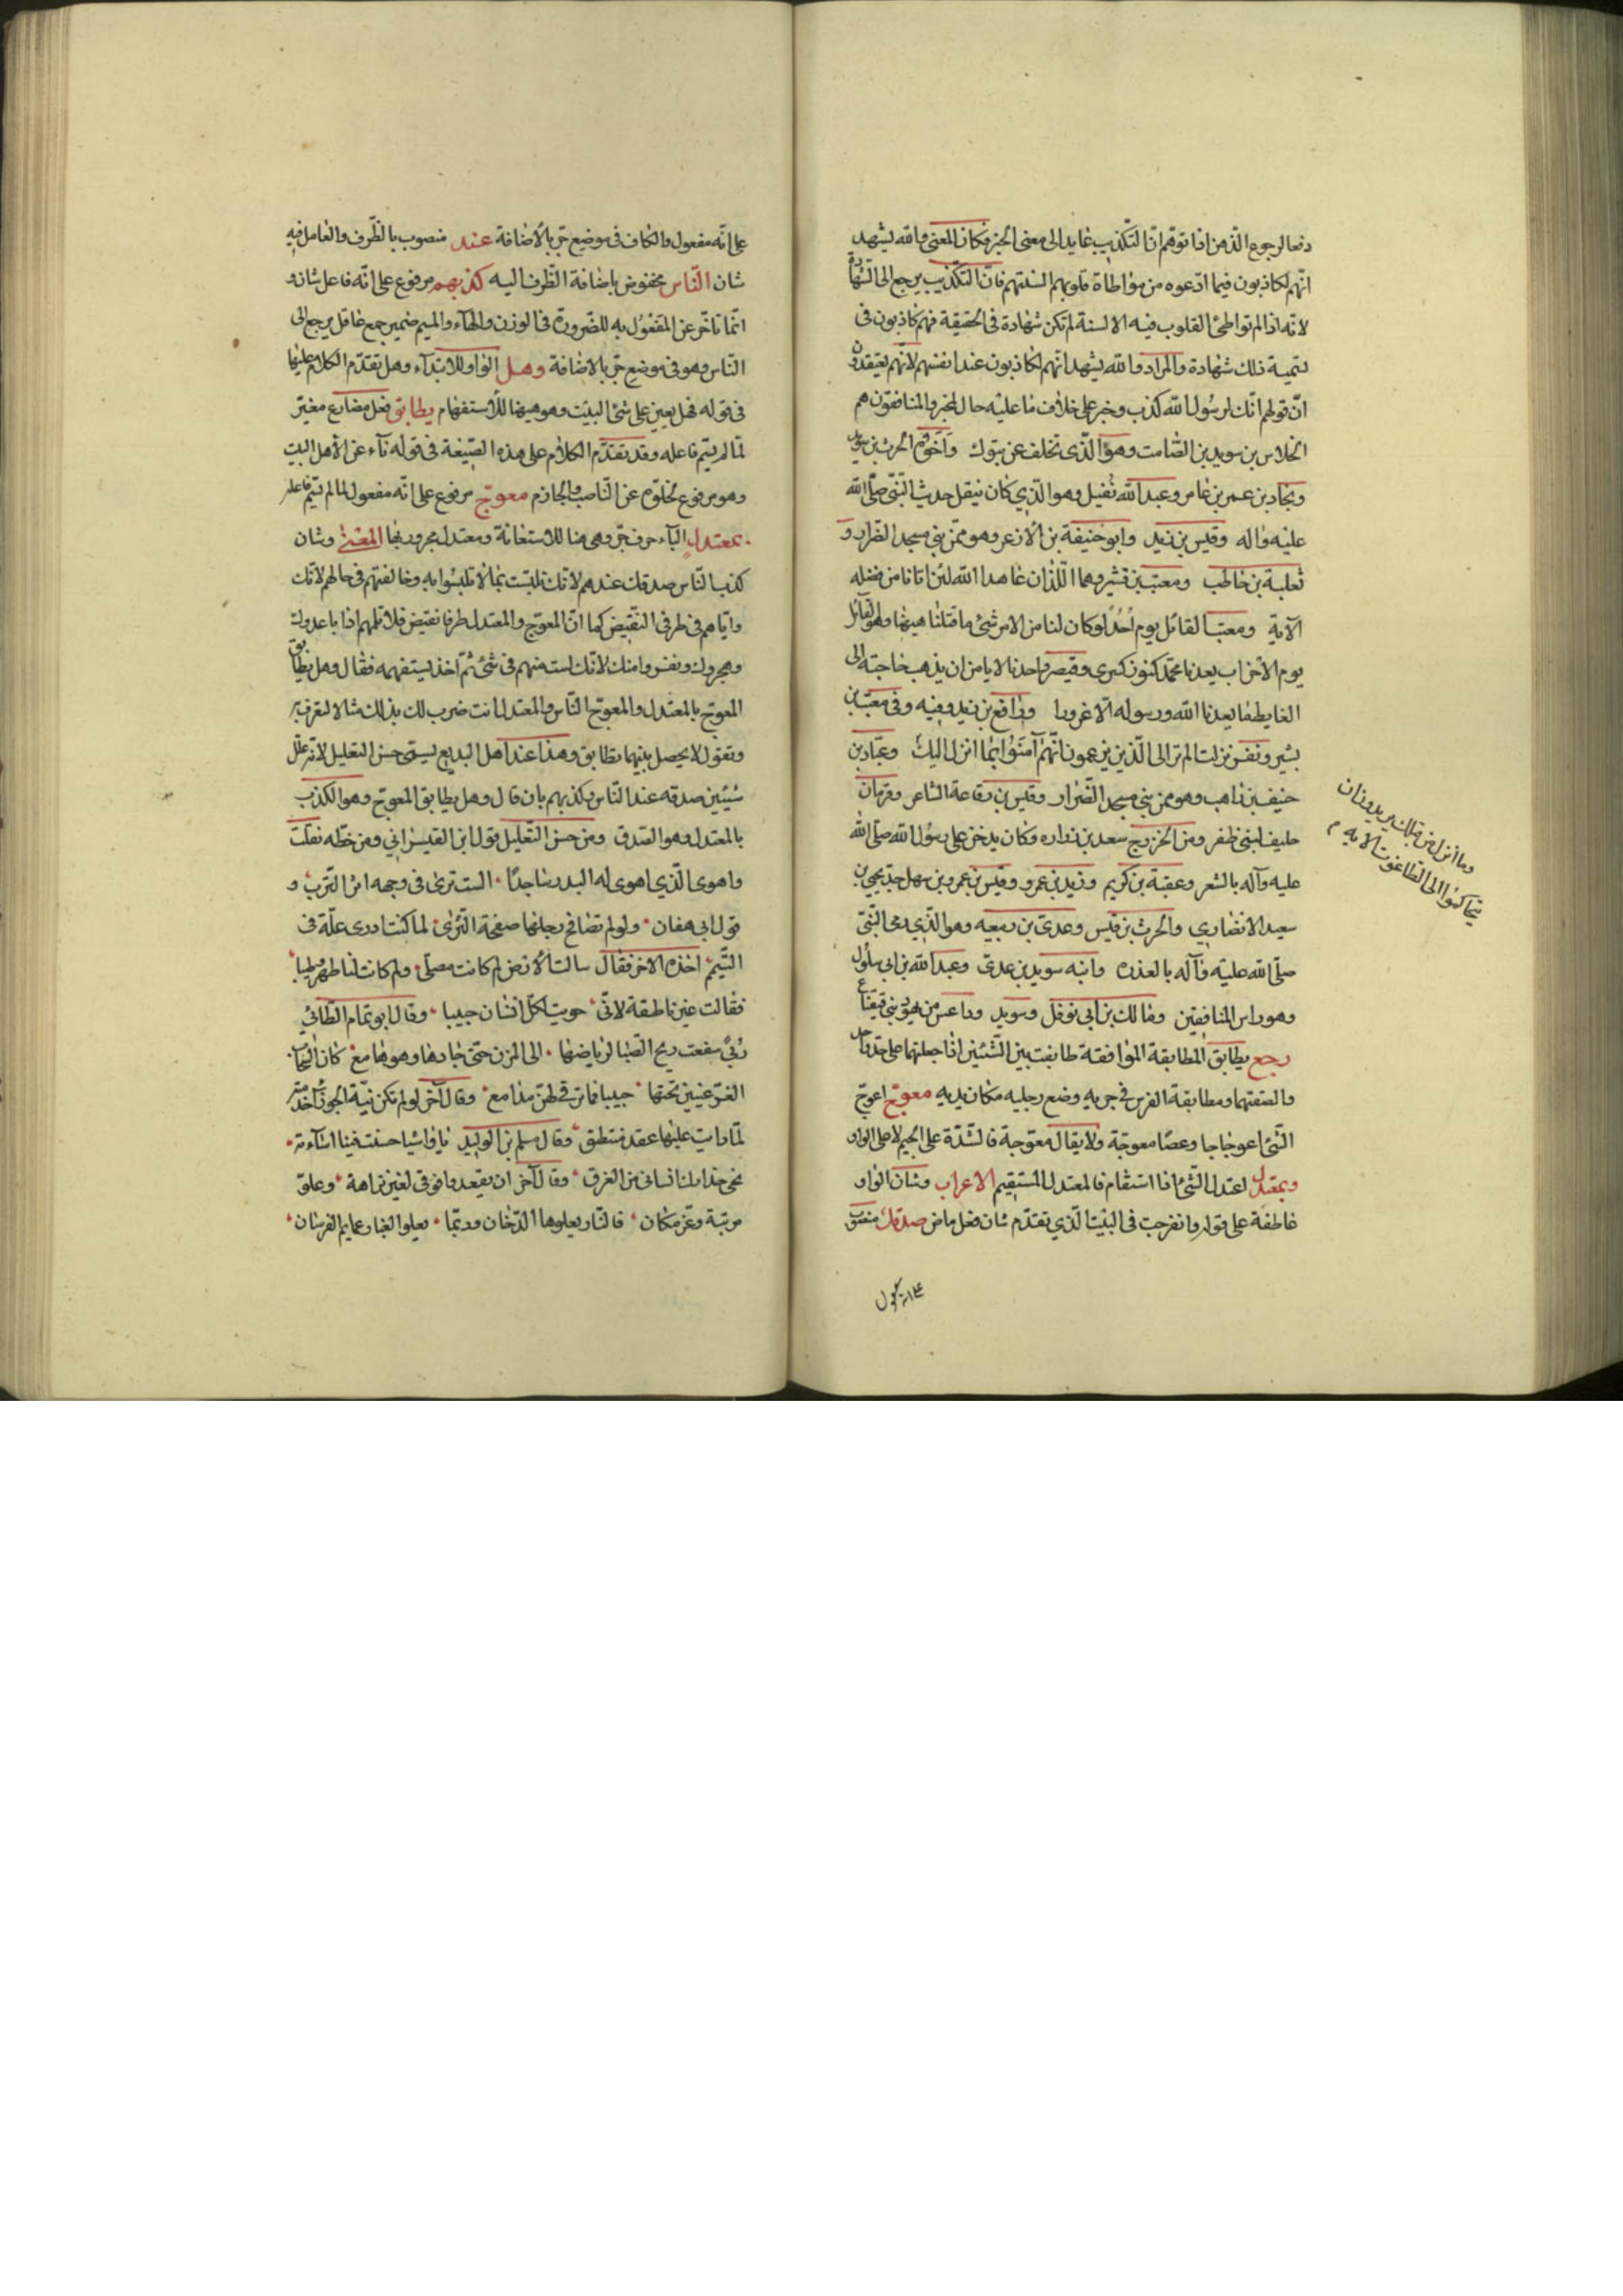 دفعا لرجوع الذهن اذا توهم انّ التكذيب عايد الى معنى الخبر فكان المعنى والله يشهد
انّهم لكاذبون فيما ادّعوه من مواطاة قلوبهم السنتهم فانّ التكذيب يرجع الى الشهادة
لانّه اذا لم تواطئ القلوب فيه الالسنة لم تكن شهادة فى الحقيقة فهم كاذبون فى
تسمية ذلك شهادة والمراد والله يشهد انّهم لكاذبون عند انفسهم لانّهم يعتقدون
انّ قولهم انّك لرسول الله كذب وخبر على خلاف ما عليه حال المخبر والمنافقون هم
الجلاس بن سويد بن الصّامت وهو الّذى تخلف عن تبوك واخوه الحرث بن سويد
وبجاد بن عمر بن عامر وعبد الله نفيل وهو الّذي كان ينقل حديث النّبىّ صلّى الله
عليه واله وقيس بن زيد وابو حنيفة بن الازعر وهو ممّن بنى مسجد الضّرار و
ثعلبة بن حاطب ومعتب بن قشير وهما اللّذان عاهدا الله لئن اتانا من فضله
الآية ومعتب القائل يوم اُحُد لو كان لنا من الامر شئ ما قتلنا هيهنا وهو القائل
يوم الاحزاب يعدنا محمّد كنوز كسرى وقيصر واحدنا لا يامن ان يذهب لحاجته الى
الغايط ما يعدنا الله ورسوله الّا غرورا ورافع بن زيد وفيه وفى معتب بن
بشير ونفر نزلت الم تر الى الّذين يزعمون انّهم آمنوا بما انزل اليك وعبّاد بن
حنيف بن ذاهب وهو ممن بنى مسجد الضّرار وقيس بن رفاعة الشاعر وقزمان
حليف لبنى ظفر ومن الخزرج سعد بن زراره وكان يدخن على رسول الله صلّى الله
عليه وآله بالشعر وعقبة بن كريم وزيد بن عمرو وقيس بن عمرو بن سهل جدّ يحيى بن
سعيد الانصاري والحرث بن قيس وعدىّ بن ربيعه وهو الّذي رمى النّبىّ
صلّى الله عليه وآله بالعذره وابنه سويد بن عدىّ وعبد الله بن ابى سلول
وهو راس المنافقين ومالك بن ابى نوفل وسويد وداعس من يهود بنى قينقاع
رجع يطابق المطابقة الموافقة طابقت بين الشّيئين اذا جعلتهما على حذو واحد
والصقتهما ومطابقة الفرس فى جريه وضع رجليه مكان يديه معوج اعوجّ
الشّئ اعوجاجا وعصا معوجّة ولا يقال معوّجة فالشّدّة على الجيم لا على الواو
وبمعتدل اعتدل الشّئ اذا استقام فالمعتدل المستقيم الاعراب وشان الواو
عاطفة على قوله وانفرجت فى البيت الّذي تقدّم شان فعل ماض صدقك منصوب
وما انزل من قبلك يريدون ان
يتحاكموا الى الطّاغوت الايه م
على انّه مفعول والكاف فى موضع جرّ بالاضافة عند منصوب بالظّرف والعامل فيه
شان النّاس مخفوض باضافة الظّرف اليه كذبهم مرفوع على انّه فاعل شان و
انّما تاخّر عن المفعول به للضّرورة فى الوزن والهآء والميم ضمير جمع عاقل يرجع الى
النّاس وهو فى موضع جرّ بالاضافة وهل الواو للابتدآء وهل تقدّم الكلام عليها
فى قوله فهل يعين على شئ البيت وهو هيهنا للاستفهام يطابق فعل مضارع مغيّر
لما لم يسّم فاعله وقد تقدّم الكلام على هذه الصّيغة فى قوله نآء عن الاهل البيت
وهو مرفوع لخلوّه عن النّاصب والجازم معوجّ مرفوع على انّه مفعول لما لم يسّم فاعله
بمعتدل البآء حرف جرّ وهى هنا للاستعانة ومعتدل مجرور بها المعنى وشان
كذب النّاس صدقك عندهم لانّك تلبّست بما لا تلبّسوا به وخالفتهم فى حالهم لانّك
وايّاهم فى طرفى النقيض كما انّ المعوجّ والمعتدل طرفا نقيض فلا تلمهم اذا باعدوك
وهجروك ونفروا منك لانّك لست منهم فى شئ ثمّ اخذ يستفهمه فقال وهل يطابق
المعوجّ بالمعتدل والمعوجّ النّاس والمعتدل انت ضرب لك بذلك مثالا لتعرف به
وتقول لا يحصل بينهما تطابق وهذا عند اهل البديع يسمّى حسن التعليل لانّه علّل
شيئين صدقه عند النّاس وكذبهم بان قال وهل يطابق المعوجّ وهو الكذب
بالمعتدل وهو الصّدق ومن حسن التّعليل قول ابن القيسرانى ومن خطّه نقلت
واهوى الّذي اهوى له البدر ساجدًا الست ترى فى وجهه اثر التّرب و
قول ابى هفان ولو لم تصافح رجلها صفحة الثّرى لما كنت ادرى علّة فى
التّيمّم اخذه الاخر فقال سالت الارض لم كانت مصلّى ولم كانت لنا طهرا وطيبا
فقالت غير ناطقة لانّى حويت لكلّ انسان حبيبا وقال ابو تمام الطّائى
ربى شفعت ريح الصّبا لرياضها الى المزن حتّى جادها وهو هامع كانّ السّحاب
الغرّ غيّبن تحتها حبيبا فما ترقى لهنّ مدامع وقال آخر لو لم تكن نيّة الجوزآء خدمته
لما رايت عليها عقد منتطق وقال مسلم بن الوليد يا واشيا حسنت فينا اسآءته
نجى حذارك انسانى من الغرق وقال آخر ان يقعد فوقى لغير نزاهة وعلوّ
مرتبة وعزّ مكان فالنّار يعلوها الدّخان وربّما يعلو الغبار عمايم الفرسان